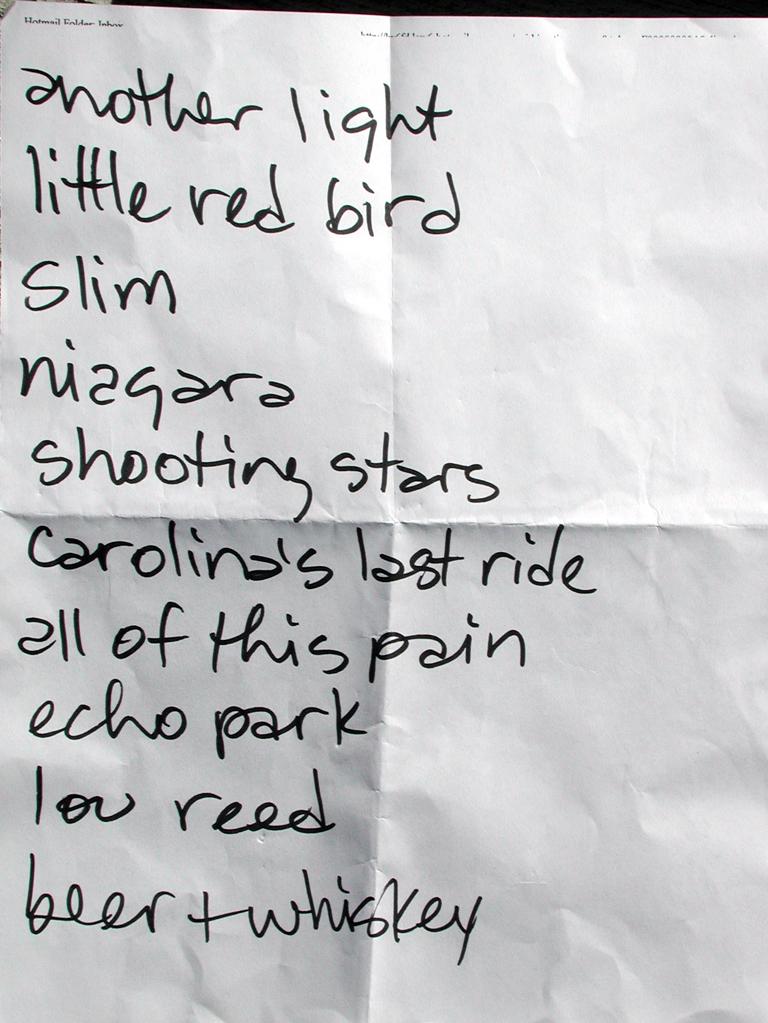 Hotmail Folder: Inbox
another light
little red bird
slim
niagara
shooting stars
carolina's last ride
all of this pain
echo park
lou reed
beer + whiskey